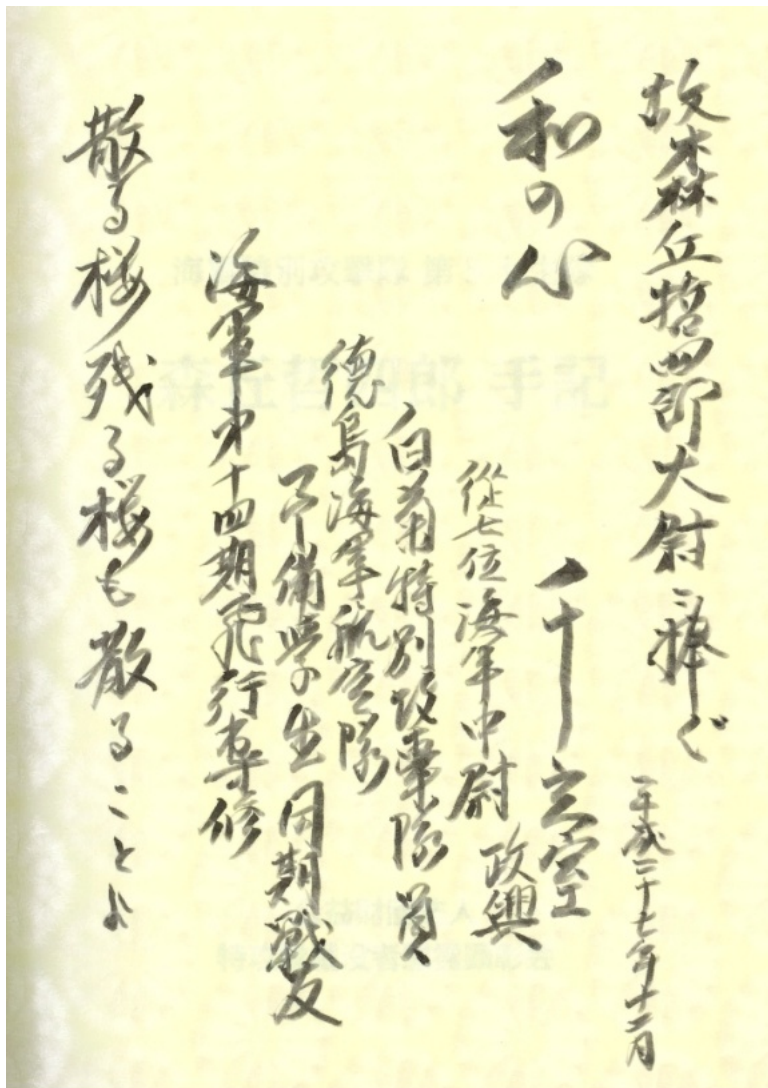 故森丘哲四郎大尉に捧ぐ
平成二十七年十二月
和の心
千玄室
政興
従七位海軍中尉
白菊特別攻撃隊員
徳島海軍航空隊
予備学生同期戦友
海軍第十四期飛行専修
散る桜残る桜も散ることよ
森丘哲四郎 手記